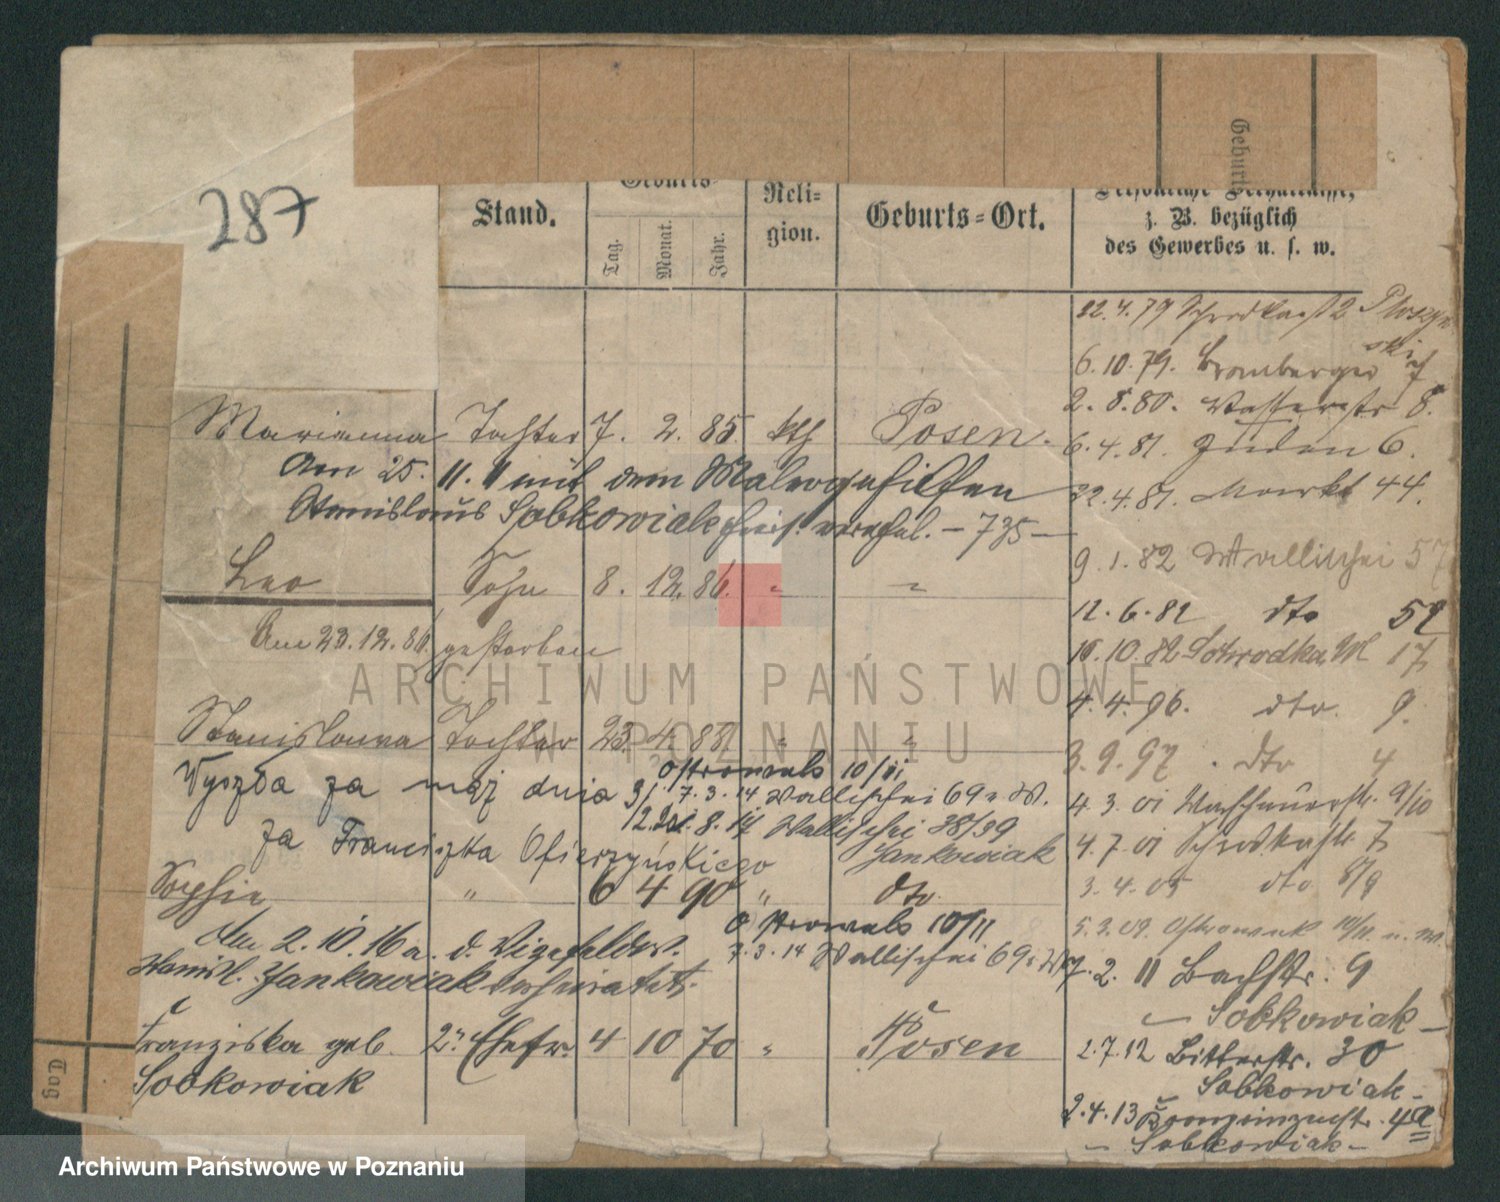 287
Geburts
Stand.
Geburts-
Tag.
Monat.
Jahr.
Reli-
gion.
Geburts-Ort.
Persönliche Verhältnisse,
z. B. bezüglich
des Gewerbes u. s. w.
22.4.79 Schrodkastr 2 Ploszyn
ski
6.10.79. Bromberger
2.8.80. Wasserstr 8.
Marianna Tochter 7. 2. 85. kth Posen.
6.4.81. Juden 6.
Am 25. 11. mit dem Malergehilfen
22.4.81. Markt 44.
Stanislaus Sobkowiak verehel. – 735 –
9.1.82 Wallischei 57
Leo Sohn 8. 12. 86. " "
12.6.82 dto 52
Am 23.12.86 gestorben
10.10.82 Schrodka M 17
4.4.96. dto. 9.
Stanislawa Tochter 23. 4. 88. " "
3.9.97 dto 4
Wyszła za mąż dnia
Ostrowek 10/11
7.3.14 Wallischei 69 v. W.
4.3.01 Wallischei 9/10
za Franciszka Ofierzyńskiego
8.14 Wallischei 38/39
Jankowiak
4.7.01 Schrodkastr 7
Sophie " 6 4 90 " dto.
3.4.05 dto 8/9
Ostrowek 10/11
5.3.09. Ostrowek 10/11
Am 2.10.16 a. d. Vizefeldw.
7.3.14 Wallischei 69
7.2.11 Bachstr. 9
Stanisl. Jankowiak verheiratet.
– Sobkowiak –
Franziska geb. 2. Ehefr. 4 10 70 " Posen
2.7.12 Bitterstr. 30
Sobkowiak
Sobkowiak –
2.4.13 4a
– Sobkowiak –
Tag
ARCHIWUM PAŃSTWOWE
W POZNANIU
Archiwum Państwowe w Poznaniu